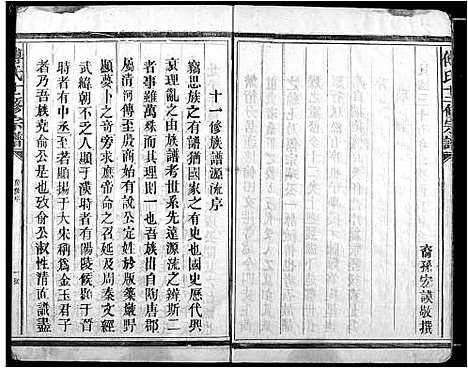 傅氏十二修宗譜
裔孫宏謨敬撰
十一修族譜源流序
竊思族之有譜猶國家之有史也國史歷代興
衰理亂之由族譜考世系先遠源流之辨斯二
者事雖萬殊而其理則一也吾族出自陶唐郡
屬清河傅至成周始以說公定姓於版築巖野
顯夢卜於帝廟命之召延及于周秦文經
武緯朝不乏人顯于漢時者有陽陵候顯于晉
時者有中丞至者顯揚于大宋稱為金玉君子
者乃吾族堯俞公是也攷俞公淑性清直議盡
傅氏十二修宗譜